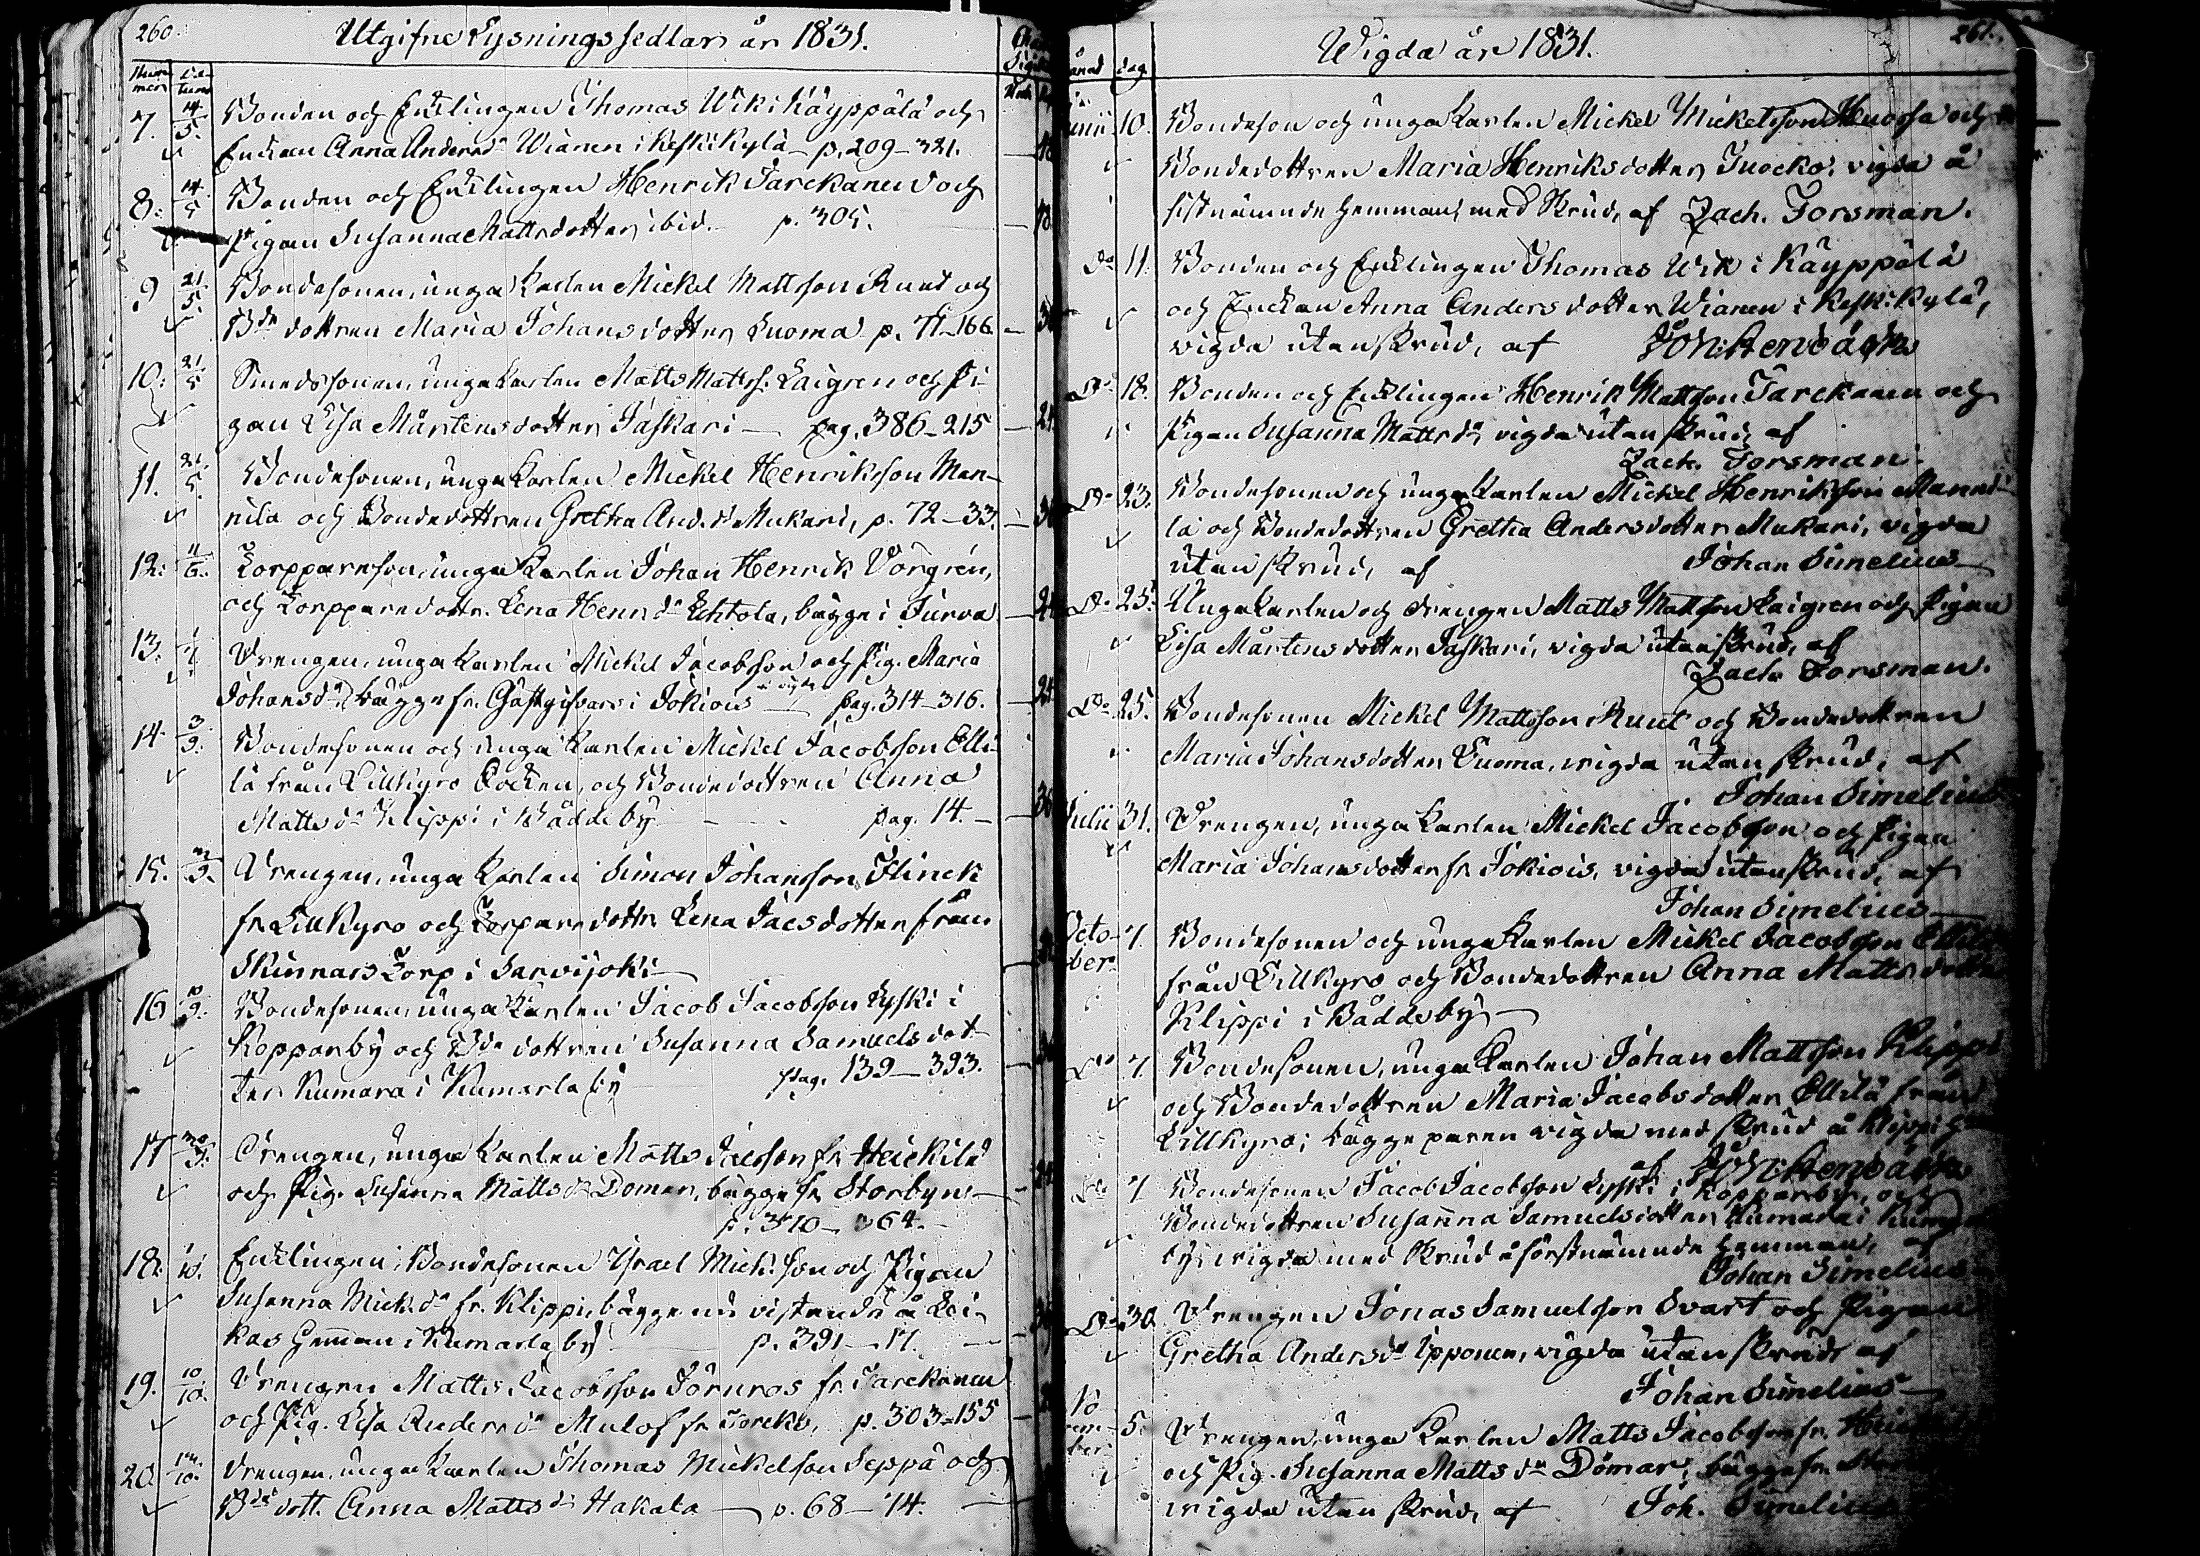 260.
Utgifne Lysningssedlar år 1831.
Num
mer
Da
tum
7. 14/5. Bonden och Enklingen Thomas Wik i Käyppälä och
Enkan Anna Andersdr Wiänen i Keskikylä p. 209-321.
8. 14/5 Bonden och Enklingen Henrik Tarckanen och
Pigan Susanna Mattsdotter, ibid. p. 305.
9 21/5. Bondesonen, unga Karlen Mickel Mattsson Ruut och
Bde dottren Maria Johansdotter Luoma p. 71-166
10. 21/5 Smedssonen, unga Karlen Matts Mattss. Laigren och Pi
gan Lisa Mårtensdotter Jaskari pag. 386-215
11. 21/5. Bondesonen, unga Karlen Mickel Henriksson Man-
nila och Bondedottren Gretha And. dr Mukari, p. 72-33.
12. 11/6. Torpparesonen, unga Karlen Johan Henrik Vörgren,
och Torpparedottr. Lena Henr. dr Lehtola, bägge i Jurva
13. 1/7. Drengen, unga Karlen Mickel Jacobsson och Pig. Maria
Johansdr, bägge fr. Gästgifvars i Jokiois pag. 314-316.
14. 3/9. Bondesonen och unga Karlen Mickel Jacobsson Elli-
lä från Lillkyro Socken, och Bondedottren Anna
Mattsdr Klippi i Båddeby pag. 14.
15. 3/9. Drengen, unga Karlen Simon Johansson Flinck
fr. Lillkyro och Torparedottr. Lena Jacsdotter från
Skinnars Torp i Sarvijoki
16 10/9. Bondesonen, unga Karlen Jacob Jacobsson Lyski i
Kopparby och Bde dottren Susanna Samuelsdot-
ter Kumara i Kumarla by pag. 139-393.
17 Drengen, unga Karlen Matts Jacsson fr. Heickilä
och Pig. Susanna Mattsdr Domar, bägge fr. Storbyn
p. 310-364.
18. 1/10. Enklingen, Bondesonen Israel Mich. Son och Pigan
Susanna Mick. dr fr. Klippi, bägge nu vistande å Lei-
kas Hemman i Kumarla by p. 391-17.
19. 10/10. Drengen Matts Jacobsson Törnroos fr. Tarckanen
och Pig. Lisa Andersdr Mulos fr. Torckko, p. 303-155
20. Drengen, unga Karlen Thomas Mickelson Seppä och
Bde dott. Anna Mattsdr Hakala p. 68-74.
261.
Wigda år 1831.
ånad dag
Junii 10. Bondeson och unga Karlen Mickel Mickelsson Huorsa och
Bondedottren Maria Henriksdotter Tuocko, vigda å
sistnämnde Hemman, med Skrud, af Zach. Forsman.
Do 11. Bonden och Enklingen Thomas Wik i Käyppälä
och Enckan Anna Andersdotter Wianen i Keskikylä,
vigda utan skrud, af Joh: Stenbäck
Do 18. Bonden och Enklingen Henrik Mattsson Tarckanen och
Pigan Susanna Mattsdr, vigda utan skrud, af
Zach. Forsman.
Do 23. Bondesonen och unga Karlen Mickel Henriksson Manni-
la och Bondedottren Gretha Andersdotter Mukari, vigda
utan skrud, af Johan Simelius
Do 25. Unga Karlen och drengen Matts Mattsson Laigren och Pigan
Lisa Mårtensdotter Jaskari, vigda utan skrud, af
Zach. Forsman.
Do 25. Bondesonen Mickel Mattsson Ruut och Bondedottren
Maria Johansdotter Luoma, vigda utan skrud, af
Johan Simelius
Julii 31. Drengen, unga Karlen Mickel Jacobsson och Pigan
Maria Johansdotter fr. Jokiois, vigda utan skrud, af
Johan Simelius
Octo-
ber 7. Bondesonen och unga Karlen Mickel Jacobsson Ellilä
från Lillkyro och Bondedottren Anna Mattsdotter
Klippi i Båddeby
Do 7. Bondesonen, unga Karlen Johan Mattsson Klippi
och Bondedottren Maria Jacobsdotter Ellilä från
Lillkyro; bägge paren vigda med skrud å Klippi
af Joh: Stenbäck
Do 7 Bondesonen Jacob Jacobsson Lyski i Kopparby, och
Bondedottren Susanna Samuelsdotter Kumara i
by, vigda med skrud å förstnämnde Hemman, af
Johan Simelius
Do 30 Drengen Jonas Samuelsson Svart och Pigan
Gretha Andersdr Ipponen, vigda utan skrud, af
Johan Simelius
No
vem-
ber 5. Drengen, unga Karlen Matts Jacobsson fr.
och Pig. Susanna Mattsdr Dömar, bägge fr.
vigda utan skrud, af Joh. Simelius